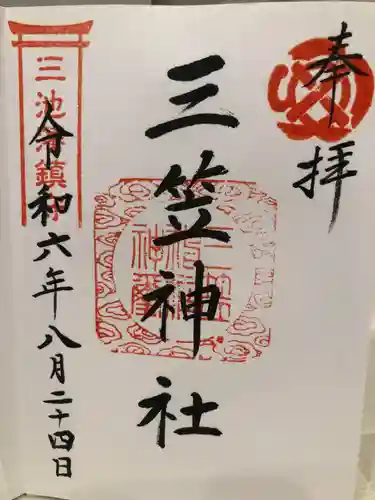 奉拝
三笠神社
令和六年八月二十四日